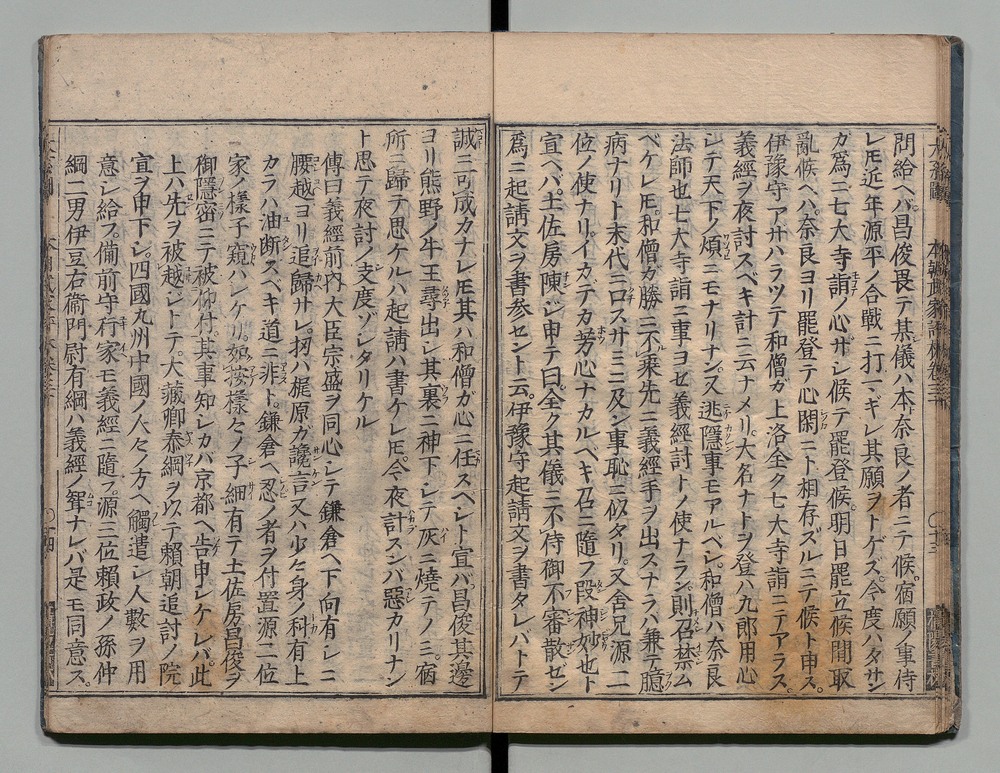 問給ヘバ昌俊畏テ其儀ハ本奈良ノ者ニテ候宿願ノ事侍
レ𪜈近年源平ノ合戰ニ打マギレ其願ヲトゲズ今度ハタサン
ガ爲ニ七大寺詣ノ心ザシ候テ罷登候明日罷立候間取
亂候ヘハ奈良ヨリ罷登テ心閑ニト相存ズルニテ候ト申ス
伊豫守アザハラツテ和僧ガ上洛全ク七大寺詣ニテアラス
義經ヲ夜討スベキ計ニ云ナメリ大名ナトヲ登ハ九郎用心
シテ天下ノ煩ニモナリナン又逃隱事モアルベシ和僧ハ奈良
法師也七大寺詣ニ事ヨセ義經討トノ使ナラン則召禁ム
ベケレ𪜈和僧ガ勝ニ不乘先ニ義經手ヲ出スナラハ兼テ臆
病ナリト末代ニ口スサミニ及ン事恥ニ似タリ又舍兄源二
位ノ使ナリイカテカ芳心ナカルベキ召ニ隨フ段神妙也ト
宣ヘバ土佐房陳ジ申テ曰全ク其儀ニ不侍御不審散ゼン
爲ニ起請文ヲ書參セント云伊豫守起請文ヲ書タレバトテ
誠ニ可成カナレ𪜈其ハ和僧ガ心ニ任スヘシト宣バ昌俊其邊
ヨリ熊野ノ牛王尋出シ其裏ニ神下シテ灰ニ燒テノミ宿
所ニ歸テ思ケルハ起請ハ書ケレ𪜈今夜計スンバ惡カリナン
ト思テ夜討ノ支度ゾシタリケル
傳曰義經前內大臣宗盛ヲ同心シテ鎌倉ヘ下向有シニ
腰越ヨリ追歸サレ扨ハ梶原ガ讒言又ハ少モ身ノ科有上
カラハ油斷スベキ道ニ非ト鎌倉ヘ忍ノ者ヲ付置源二位
家ノ樣子窺ハシケリ然樣々ノ子細有テ土佐房昌俊ヲ
御隱密ニテ被仰付其事知レカバ京都ヘ告申シケレバ此
上ハ先ヲ被越シトテ大藏卿泰綱ヲ以テ賴朝追討ノ院
宣ヲ申下シ四國九州中國ノ人々ノ方ヘ觸遣シ人數ヲ用
意シ給フ備前守行家モ義經ニ隨フ源三位賴政ノ孫仲
綱二男伊豆右衞門尉有綱ハ義經ノ聟ナレバ是モ同意ス